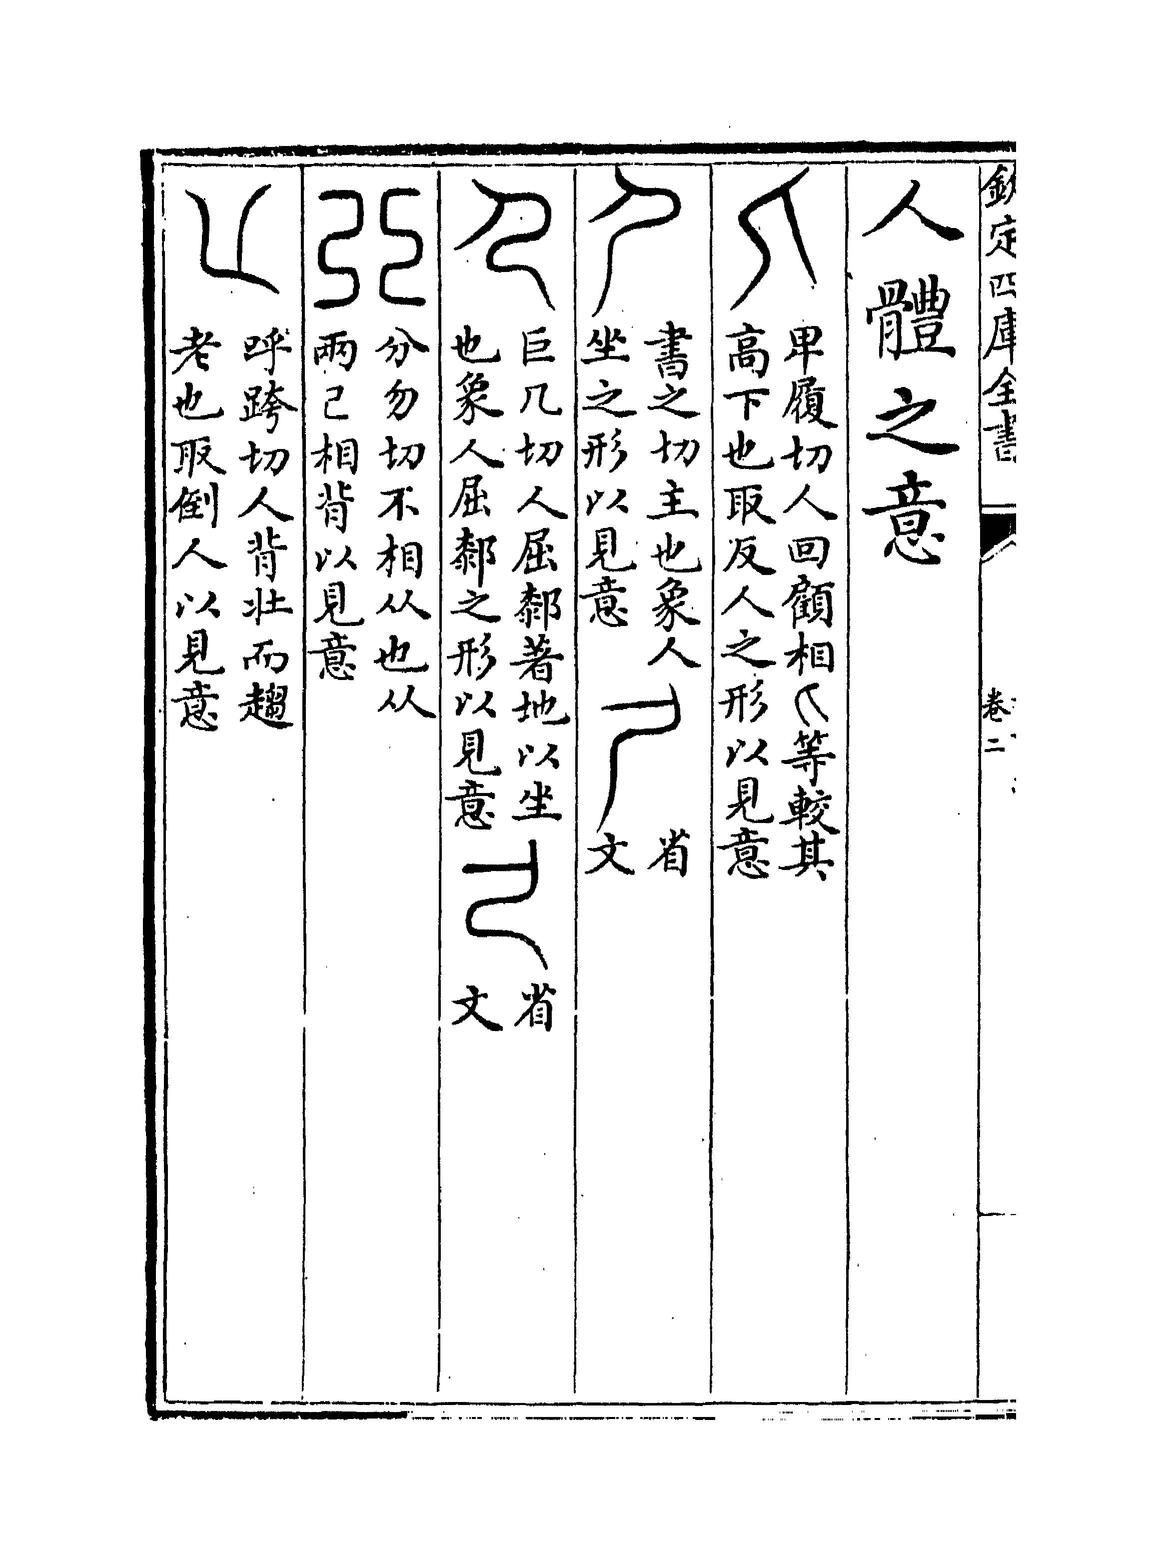 欽定四庫全書
卷二
人體之意
卑履切人回顧相匕等較其
高下也取反人之形以見意
書之切主也象人
坐之形以見意
省
文
巨几切人屈厀著地以坐
也象人屈厀之形以見意
省
文
分勿切不相从也从
兩己相背以見意
呼跨切人背壯而趨
老也取倒人以見意